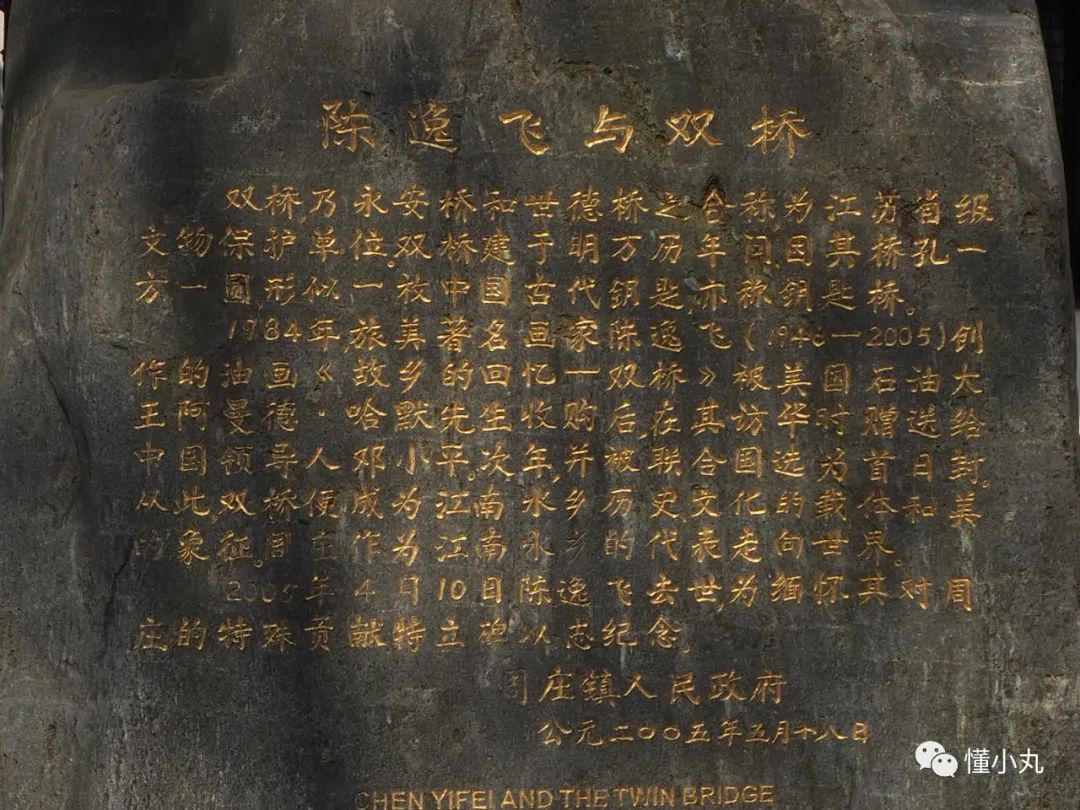 陈逸飞与双桥
双桥,乃永安桥和世德桥之合称,为江苏省级
文物保护单位。双桥建于明万历年间,因其桥孔一
方一圆,形似一枚中国古代钥匙,亦称钥匙桥。
1984年,旅美著名画家陈逸飞(1946—2005)创
作的油画《故乡的回忆—双桥》被美国石油大
王阿曼德·哈默先生收购后,在其访华时赠送给
中国领导人邓小平。次年,并被联合国选为首日封。
从此,双桥便成为江南水乡历史文化的载体和美
的象征。周庄作为江南水乡的代表走向世界。
2005年4月10日陈逸飞去世,为缅怀其对周
庄的特殊贡献特立碑以志纪念。
周庄镇人民政府
公元二〇〇五年五月十八日
CHEN YIFEI AND THE TWIN BRIDGE
懂小丸